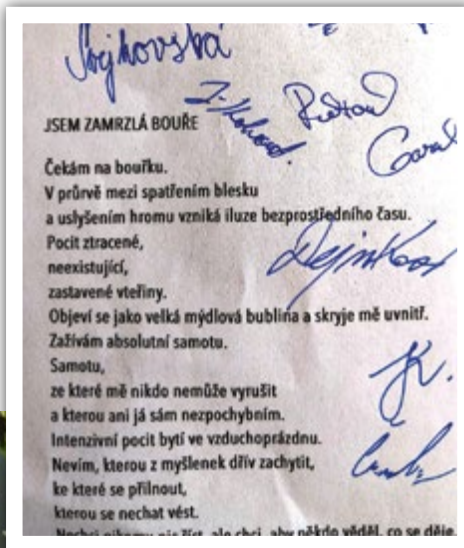 JSEM ZAMRZLÁ BOUŘE
Čekám na bouřku.
V průrvě mezi spatřením blesku
a uslyšením hromu vzniká iluze bezprostředního času.
Pocit ztracené,
neexistující,
zastavené vteřiny.
Objeví se jako velká mýdlová bublina a skryje mě uvnitř.
Zažívám absolutní samotu.
Samotu,
ze které mě nikdo nemůže vyrušit
a kterou ani já sám nezpochybním.
Intenzivní pocit bytí ve vzduchoprázdnu.
Nevím, kterou z myšlenek dřív zachytit,
ke které se přilnout,
kterou se nechat vést.
Nechci nikomu nic říct, ale chci, aby někdo věděl, co se děje